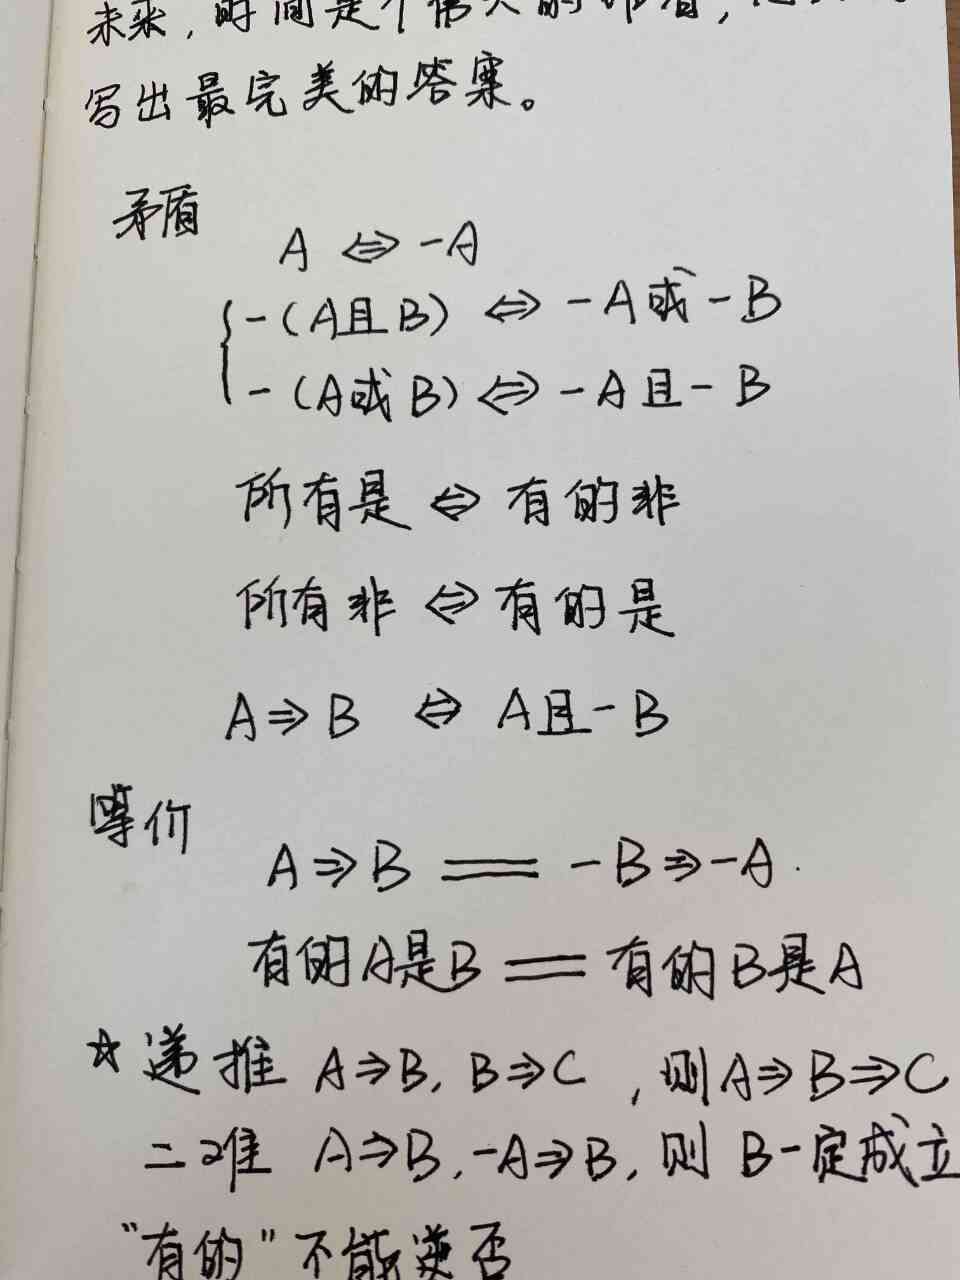 未来,时间是个伟大的作者,
写出最完美的答案。
矛盾
A ⇔ -A
-(A且B) ⇔ -A或-B
-(A或B) ⇔ -A且-B
所有是 ⇔ 有的非
所有非 ⇔ 有的是
A⇒B ⇔ A且-B
等价
A⇒B == -B⇒-A.
有的A是B == 有的B是A
☆递推 A⇒B, B⇒C ,则A⇒B⇒C
二难 A⇒B,-A⇒B,则 B一定成立
"有的"不能逆否